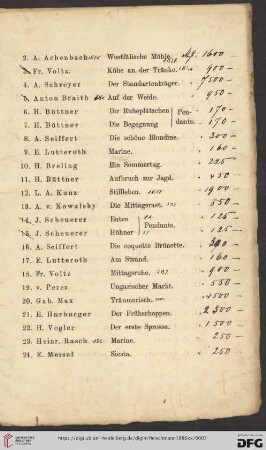 2. A. Achenbach Westfälische Mühle. M. 1600 —
3. Fr. Voltz Kühe an der Tränke. " 900 —
4. A. Schreyer Der Standartenträger. " 7500 —
5. Anton Braith Auf der Weide. " 950 —
6. H. Büttner Ihr Ruheplätzchen } Pen- " 170 —
7. H. Büttner Die Begegnung } dants. " 170 —
8. A. Seiffert Die schöne Blondine. " 200 —
9. E. Lutteroth Marine. " 160 —
10. H. Breling Ein Sommertag. " 225 —
11. H. Büttner Aufbruch zur Jagd. " 450 —
12. L. A. Kunz Stillleben. " 1900 —
13. A. v. Kowalsky Die Mittagsrast. " 550 —
14. J. Scheuerer Enten } Pendants. " 125 —
15. J. Scheuerer Hühner } " 125 —
16. A. Seiffert Die coquette Brünette. —
17. E. Lutteroth Am Strand. " 160 —
18. Fr. Voltz Mittagsruhe. " 900 —
19. v. Perez Ungarischer Markt. " 550 —
20. Gab. Max Träumerisch. " 4500 —
21. E. Harburger Der Frühschoppen. " 2500 —
22. H. Vogler Der erste Sprosse. " 1500 —
23. Heinr. Rasch Marine. 250 —
24. E. Meisel Siesta. " 250 —
UNIVERSITÄTS-
BIBLIOTHEK
HEIDELBERG
https://digi.ub.uni-heidelberg.de/diglit/fleischmann1886xx/0003
Gefördert durch die
DFG